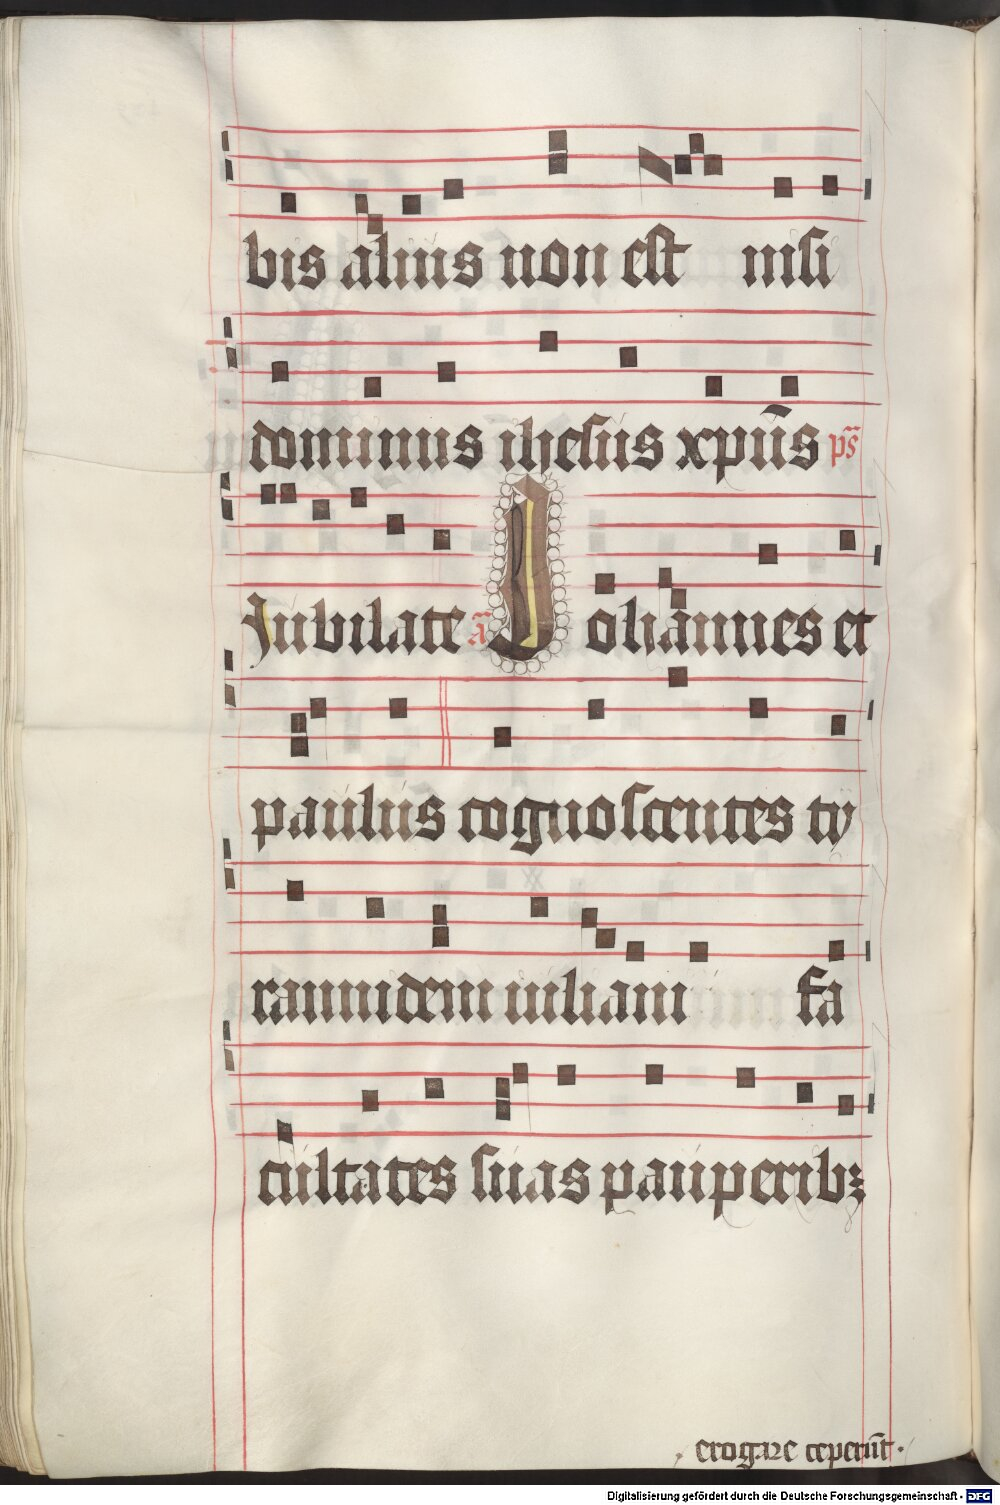 bis alius non est nisi
dominus ihesus xpūs ps̄
Jubilate ā Johannes et
paulus cognoscentes ty
rannidem iuliani fa
cultates suas pauperibꝫ
erogare ceperūt.
Digitalisierung gefördert durch die Deutsche Forschungsgemeinschaft - DFG